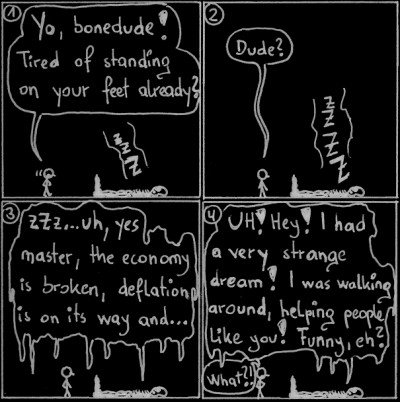 1
Yo, bonedude!
Tired of standing
on your feet already?
z
z
Z
2
Dude?
z
z
z
Z
Z
3
zZz...uh, yes
master, the economy
is broken, deflation
is on its way and...
4
UH! Hey! I had
a very strange
dream! I was walking
around, helping people
like you! Funny, eh?
What?!